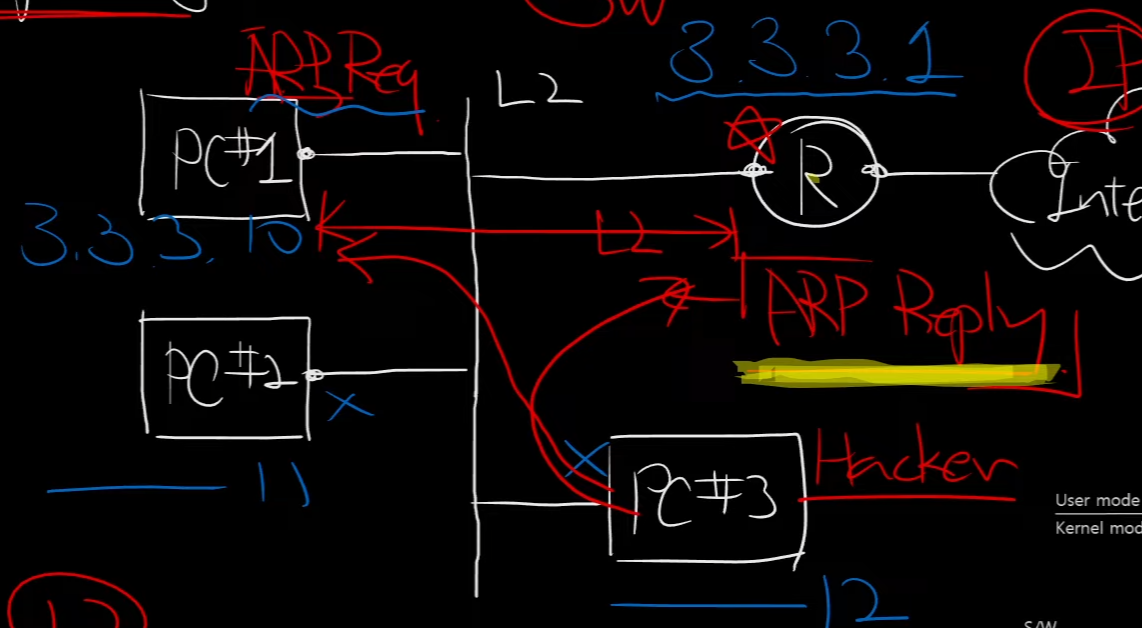 SW
ARP Req.
L2
3.3.3.1
IP
PC#1
R
Inte
3.3.3.10
L2
ARP Reply
PC#2
x
x
11
PC#3
Hacker
User mode
Kernel mod
12
S/W